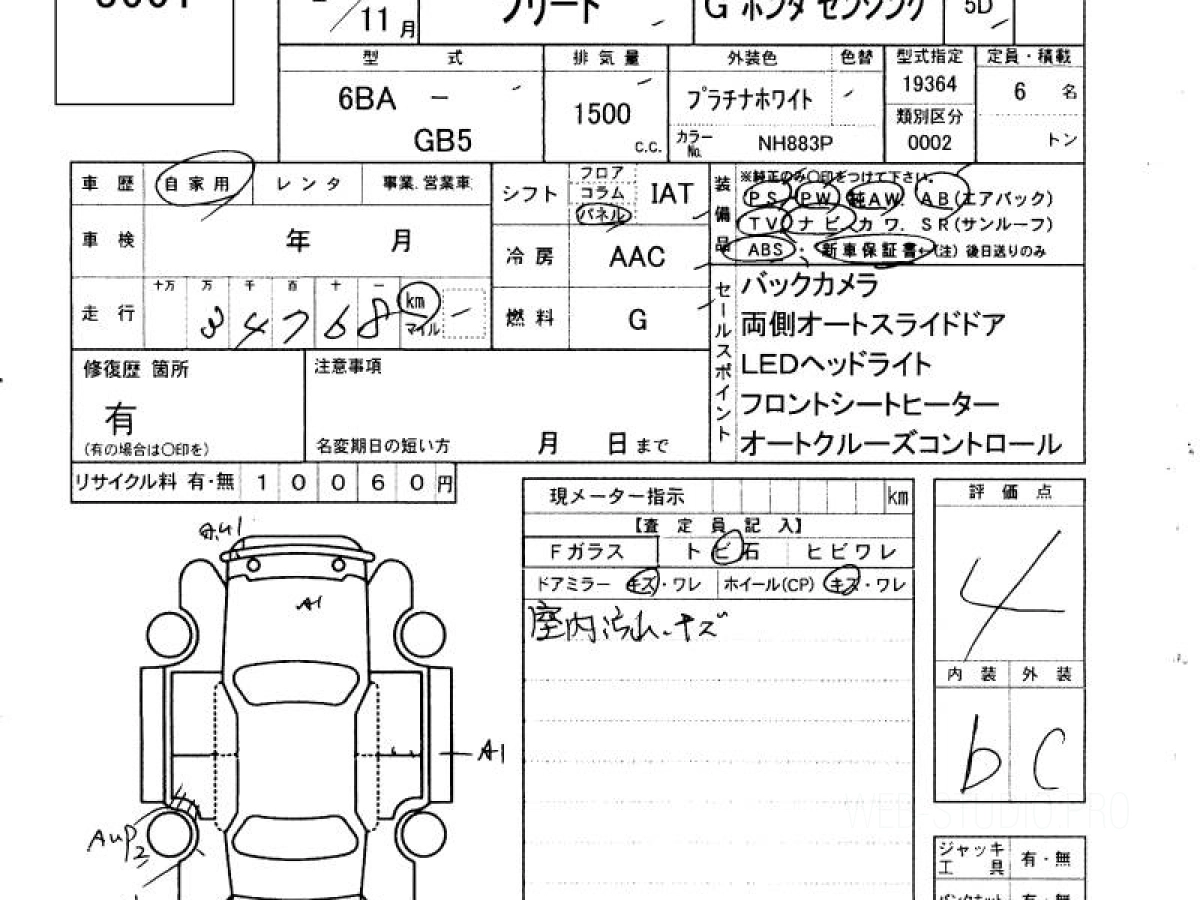 11 月
フリード
G ホンダ センシング
5D
型 式
排 気 量
外装色
色替
型式指定
定員・積載
6BA －
GB5
1500
c.c.
プラチナホワイト
カラーNo.
NH883P
19364
類別区分
0002
6 名
トン
車 歴
自 家 用
レ ン タ
事業.営業車
車 検
年 月
走 行
十万 万 千 百 十 一
3 4 7 6 8
km
マイル
シフト
フロア
コラム
パネル
IAT
冷 房
AAC
燃 料
G
装備品
※純正のみ〇印をつけて下さい。
PS. PW. 純AW. AB(エアバック)
TV. ナビ. カワ. SR(サンルーフ)
ABS・新車保証書←(注) 後日送りのみ
セールスポイント
バックカメラ
両側オートスライドドア
LEDヘッドライト
フロントシートヒーター
オートクルーズコントロール
修復歴 箇所
有
(有の場合は〇印を)
注意事項
名変期日の短い方
月 日 まで
リサイクル料 有・無 1 0 0 6 0 円
現メーター指示
km
【査 定 員 記 入】
Fガラス
ト ビ 石
ヒ ビ ワ レ
ドアミラー キズ・ワレ
ホイール(CP) キズ・ワレ
室内汚れ、キズ
評 価 点
4
内 装
外 装
b
C
A1
A1
AUP2
ジャッキ
工 具
有・無
WEB-STUDIO.PRO